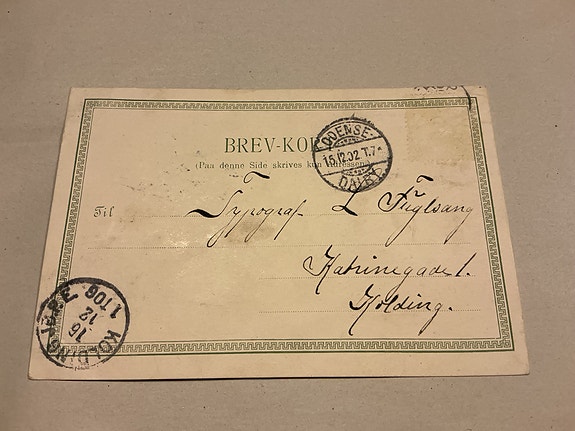 BREV-KORT
(Paa denne Side skrives kun Adressen)
ODENSE-
15.12.02 T.7*
DALBY
Til
Typograf L Fuglsang
Katrinegade 1.
Kolding.
KOLDING
16
12
1 TOG